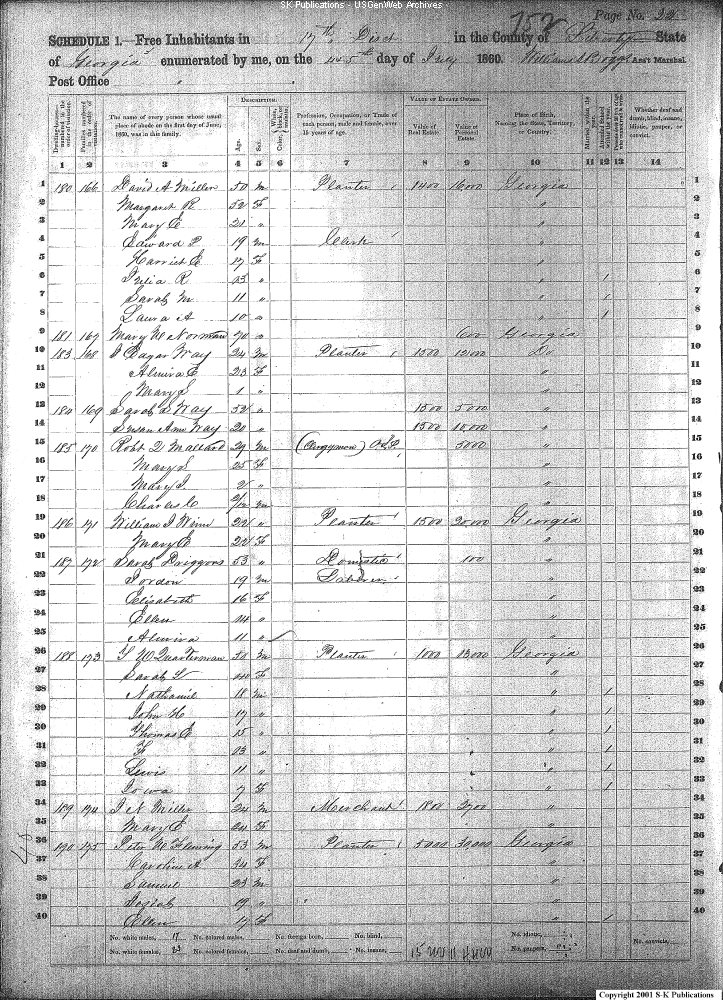 SK Publications - USGenWeb Archives
752 Page No. 22
SCHEDULE 1.—Free Inhabitants in 17th Dist in the County of State
of Georgia enumerated by me, on the day of July 1860. Ass't Marshal.
Post Office
Dwelling-houses numbered in the order of visitation.
Families numbered in the order of visitation.
The name of every person whose usual place of abode on the first day of June, 1860, was in this family.
DESCRIPTION.
Age.
Sex.
Color,
Profession, Occupation, or Trade of each person, male and female, over 15 years of age.
VALUE OF ESTATE OWNED.
Value of Real Estate.
Value of Personal Estate.
Place of Birth, Naming the State, Territory, or Country.
Whether deaf and dumb, blind, insane, idiotic, pauper, or convict.
1 2 3 4 5 6 7 8 9 10 11 12 13 14
1 180 166 David A Miller 50 m Planter 1400 16000 Georgia 1
2 Margaret R 52 F " 2
3 Mary E 21 " " 3
4 Edward P 19 m Clerk " 4
5 Harriet E 17 F " 5
6 Julia R 13 " " / 6
7 Sarah M 11 " " / 7
8 Laura A 10 " " / 8
9 181 167 Mary W Norman 70 " 600 Georgia 9
10 183 168 Edgar Way 24 m Planter 1500 12000 Do 10
11 Almira E 23 F " 11
12 Mary S 1 " " 12
13 184 169 Sarah S Way 52 " 1500 5000 " 13
14 Susan Ann Way 20 " 1500 10000 " 14
15 185 170 Robt Q Mallard 29 m (Clergyman) O.S.P. 5000 " 15
16 Mary S 25 F " 16
17 Mary J 2 " " 17
18 Charles C m " 18
19 186 171 William J Winn 22 " Planter 1500 20000 Georgia 19
20 Mary E 22 F " 20
21 187 172 Sarah Driggors 53 " Domestic 100 " 21
22 Jordon 19 m Laborer " 22
23 Elisabeth 16 F " 23
24 Ellen 14 " " 24
25 Almira 11 " " 25
26 188 173 Y W Quarterman 50 m Planter 1000 13000 Georgia 26
27 Sarah F " 27
28 Nathaniel 18 m " / 28
29 John H 17 " " / 29
30 Thomas E 15 " " / 30
31 13 " " / 31
32 Lewis 11 " " / 32
33 Iowa 7 F " / 33
34 189 174 J N Miller 24 m Merchant 1800 " 34
35 Mary E 24 F " 35
36 190 175 Peter W Fleming 53 m Planter 5000 30,000 Georgia 36
37 Caroline A F " 37
38 Samuel 23 m " 38
39 19 " " 39
40 Ellen 17 F " / 40
No. white males, 17 No. colored males, No. foreign born, No. blind, No. idiotic, No. convicts,
No. white females, 23 No. colored females, No. deaf and dumb, No. insane, No. paupers,
Copyright 2001 S-K Publications